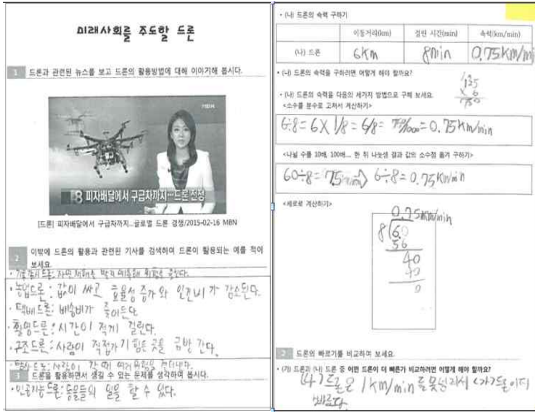 미래사회를 주도할 드론
1 드론과 관련된 뉴스를 보고 드론의 활용방법에 대해 이야기해 봅시다.
MBN
8 피자배달에서 구급차까지…드론 전쟁
[드론] 피자배달에서 구급차까지...글로벌 드론 경쟁/2015-02-16 MBN
2 이밖에 드론의 활용과 관련된 기사를 검색하여 드론이 활용되는 예를 적어 보세요.
·농업드론: 값이 싸고 효율성 증가와 인건비가 감소된다.
·택배드론: 배송비가 줄어든다.
·촬영드론: 시간이 적게 걸린다.
·구조드론: 사람이 직접가기 힘든 곳을 대신 간다.
3 드론을 활용하면서 생길 수 있는 문제를 생각하여 봅시다.
·인공지능드론: 동물들의 일을 할 수 있다.
• (나) 드론의 속력 구하기
이동거리(km) 걸린 시간(min) 속력(km/min)
(나) 드론 6km 8min 0.75km/min
• (나) 드론의 속력을 구하려면 어떻게 해야 할까요?
• (나) 드론의 속력을 다음의 세가지 방법으로 구해 보세요.
<소수를 분수로 고쳐서 계산하기>
6÷8=6×1/8=6/8=75/100=0.75km/min
<나닐 수를 10배, 100배... 한 뒤 나눗셈 결과 값의 소수점 옮겨 구하기>
60÷8=7.5 6÷8=0.75km/min
<세로로 계산하기>
0.75km/min
8 6.0
56
40
40
0
2 드론의 빠르기를 비교하여 보세요.
• (가) 드론과 (나) 드론 중 어떤 드론이 더 빠른가 비교하려면 어떻게 해야 할까?
(나)드론은 1km/min를 못넘어서 (가)드론이 더 빠르다.